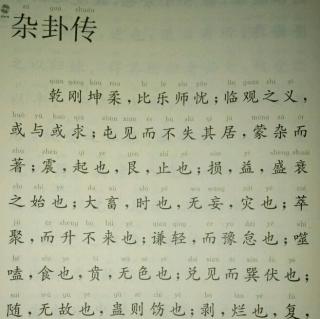 杂卦传
乾刚坤柔，比乐师忧；临观之义，
或与或求；屯见而不失其居，蒙杂而
著；震，起也，艮，止也；损，益，盛衰
之始也；大畜，时也，无妄，灾也；萃
聚，而升不来也；谦轻，而豫怠也；噬
嗑，食也，贲，无色也；兑见而巽伏也；
随，无故也，蛊则饬也；剥，烂也，复，